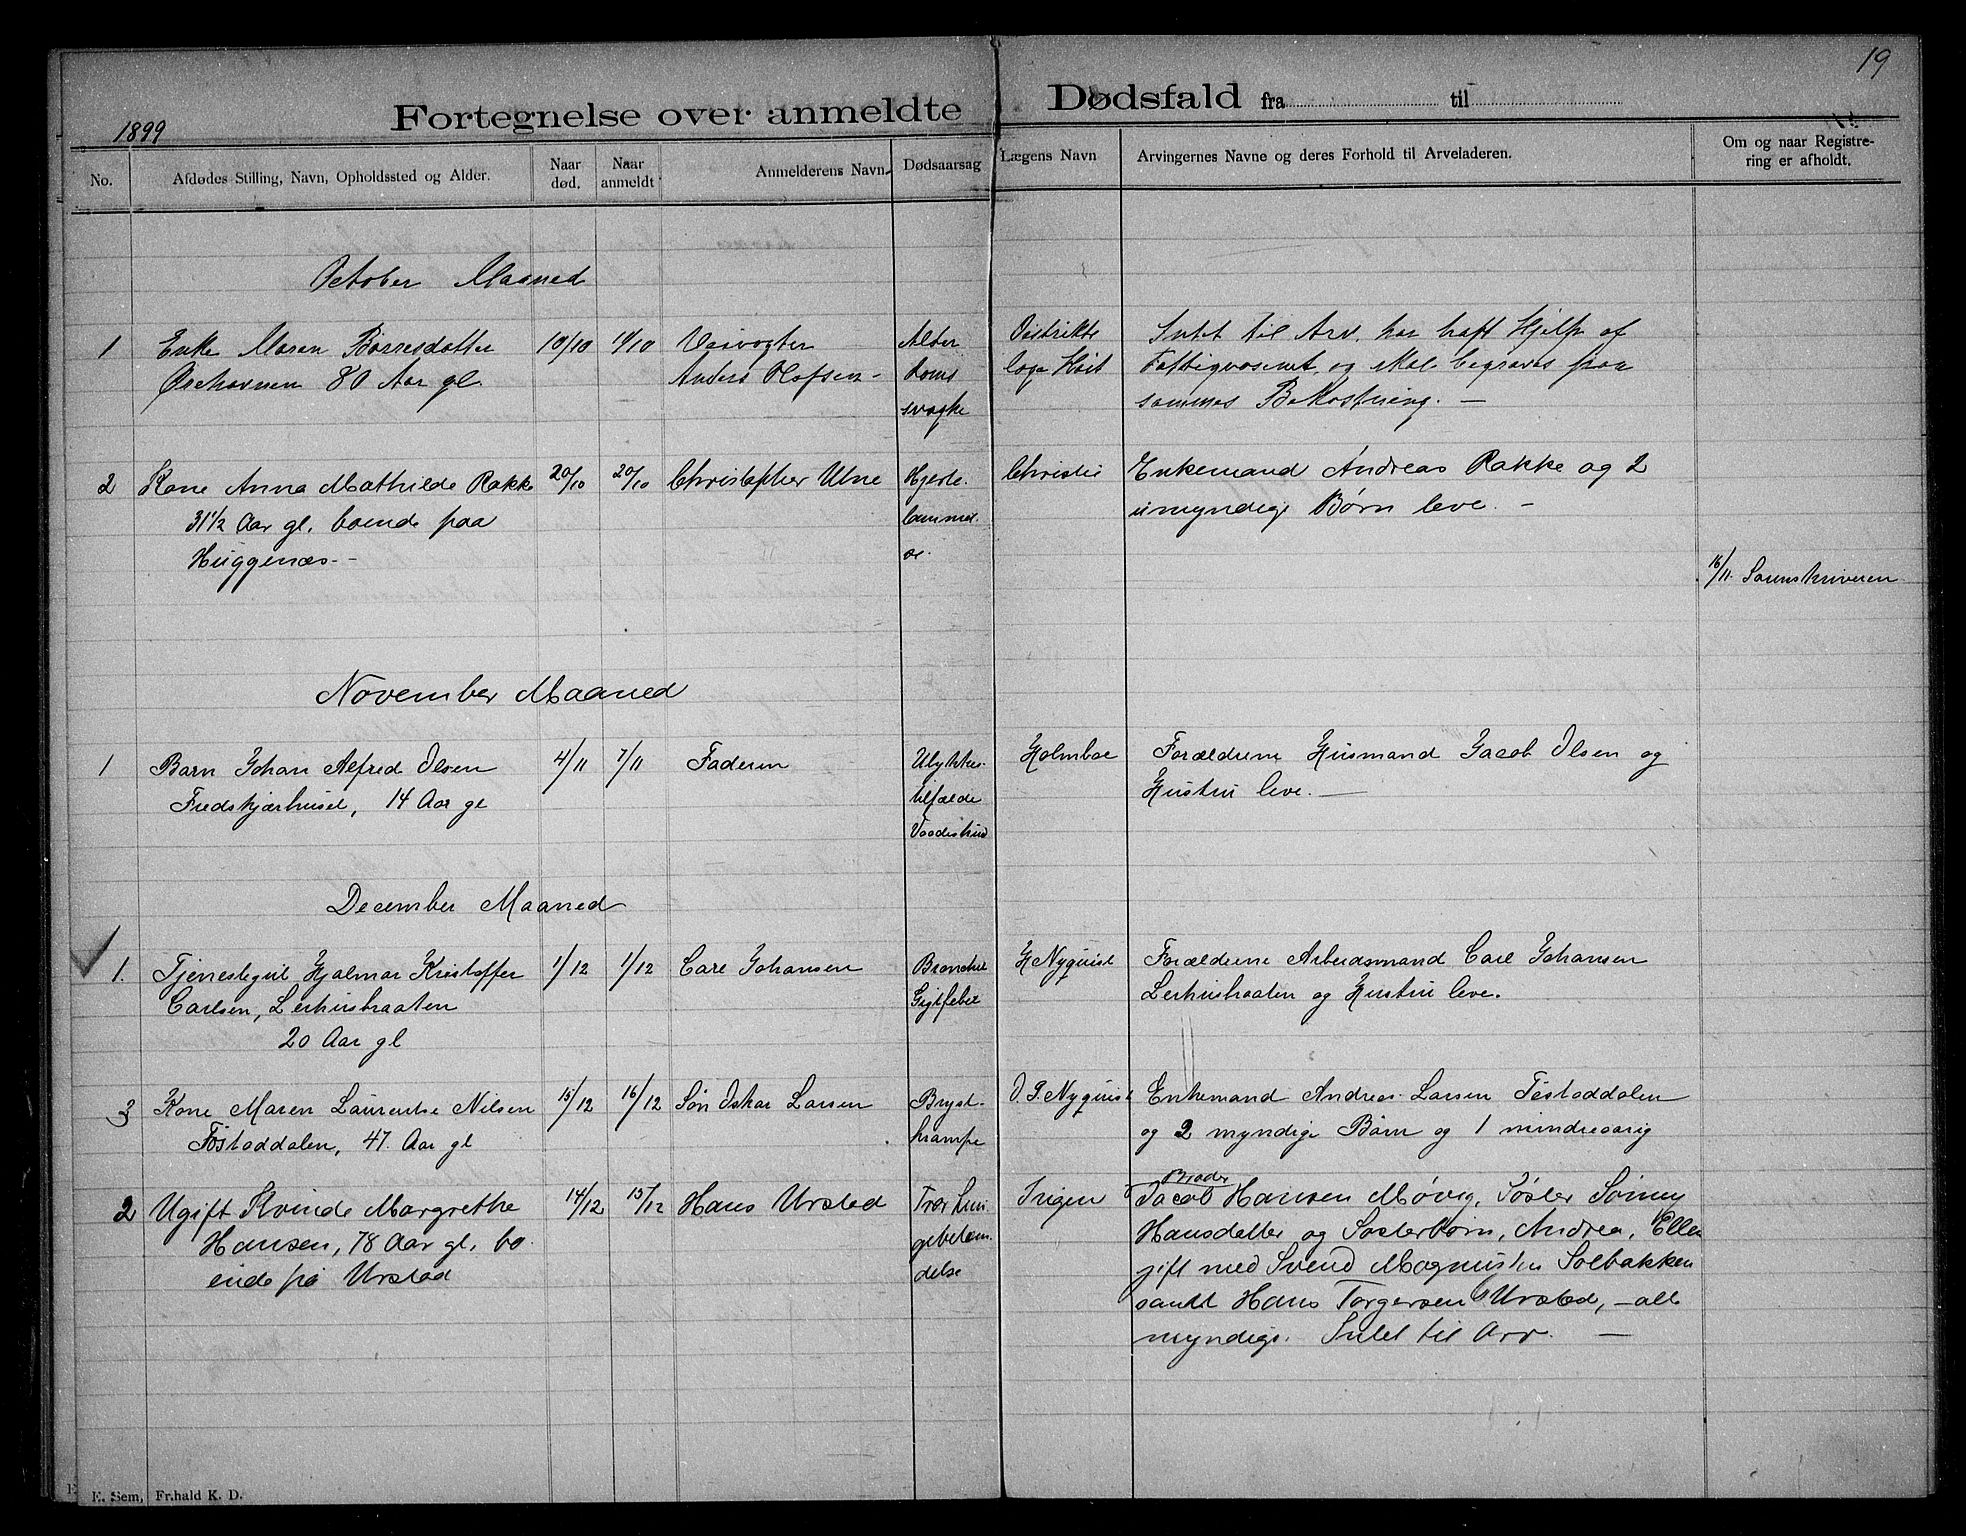 19
Fortegnelse over anmeldte Dødsfald fra til
1899
No.
Afdødes Stilling, Navn, Opholdssted og Alder.
Naar død.
Naar anmeldt
Anmelderens Navn.
Dødsaarsag
Lægens Navn
Arvingernes Navne og deres Forhold til Arveladeren.
Om og naar Registre-
ring er afholdt.
October Maaned
1 Enke Maren Børresdatter 10/10 11/10 Veivogter Alder Distrikts Intet til Arv, har haft Hjelp af
80 Aar gl. Anders Olafsen - doms læge Høit Fattigvæsenet, og skal begraves paa
svaghe sammes Bekostning. -
2 Kone Anna Mathilde Rakke 20/10 20/10 Christopher Utne Hjerte- Christie Enkemand Andreas Rakke og 2
31 1/2 Aar gl. boende paa lammel- umyndige Børn leve. -
Huggenæs. - se.
16/11. Sorenskriveren
November Maaned
1 Barn Johan Alfred Olsen 4/11 7/11 Faderen Ulykkes- Holmboe Forældrene Husmand Jacob Olsen og
Fredskjærhuset, 14 Aar gl tilfælde Hustru leve. -
Vaadeskud
December Maaned
1. Tjenestegut Hjalmar Kristoffer 1/12 1/12 Carl Johansen Bronchit H Nyquist Forældrene Arbeidsmand Carl Johansen
Carlsen, Lerhusbraaten Gigtfeber Lerhusbraaten og Hustru leve.
20 Aar gl
3 Kone Maren Laurentse Nilsen 15/12 16/12 Søn Oskar Larsen Bryst- Nyquist Enkemand Andreas Larsen Tøstaddalen
47 Aar gl krampe og 2 myndige Børn og 1 mindreaarig
2 Ugift Kvinde Margrethe 14/12 15/12 Hans Urstad Ingen Broder
Jacob Hansen Møvig, Søster
Hansen, 78 Aar gl. bo- Hansdatter og Søsterbørn, Andrea, Ellen
ende på Urstad delse gift med Svend Magnusen Solbakken
samt Hans Torgersen Urstad, - alle
myndige. Intet til Arv. -
E. Sem, Fr.hald K. D.